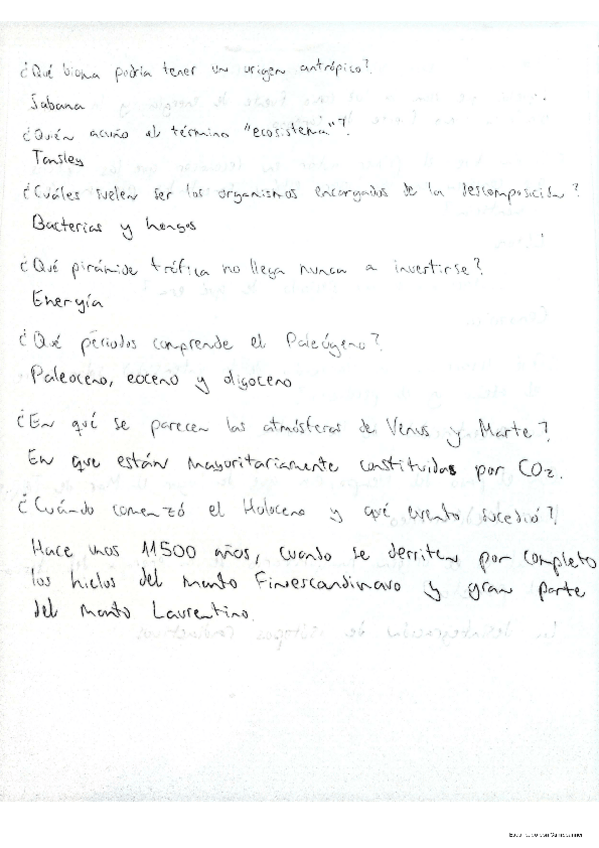 ¿Qué bioma podría tener un origen antrópico?
Sabana
¿Quién acuñó el término "ecosistema"?
Tansley
¿Cuáles suelen ser los organismos encargados de la descomposición?
Bacterias y hongos
¿Qué pirámide trófica no llega nunca a invertirse?
Energía
¿Qué períodos comprende el Paleógeno?
Paleoceno, eoceno y oligoceno
¿En qué se parecen las atmósferas de Venus y Marte?
En que están mayoritariamente constituidas por CO2.
¿Cuándo comenzó el Holoceno y qué evento sucedió?
Hace unos 11500 años, cuando se derriten por completo
los hielos del manto Finoescandinavo y gran parte
del manto Laurentino.